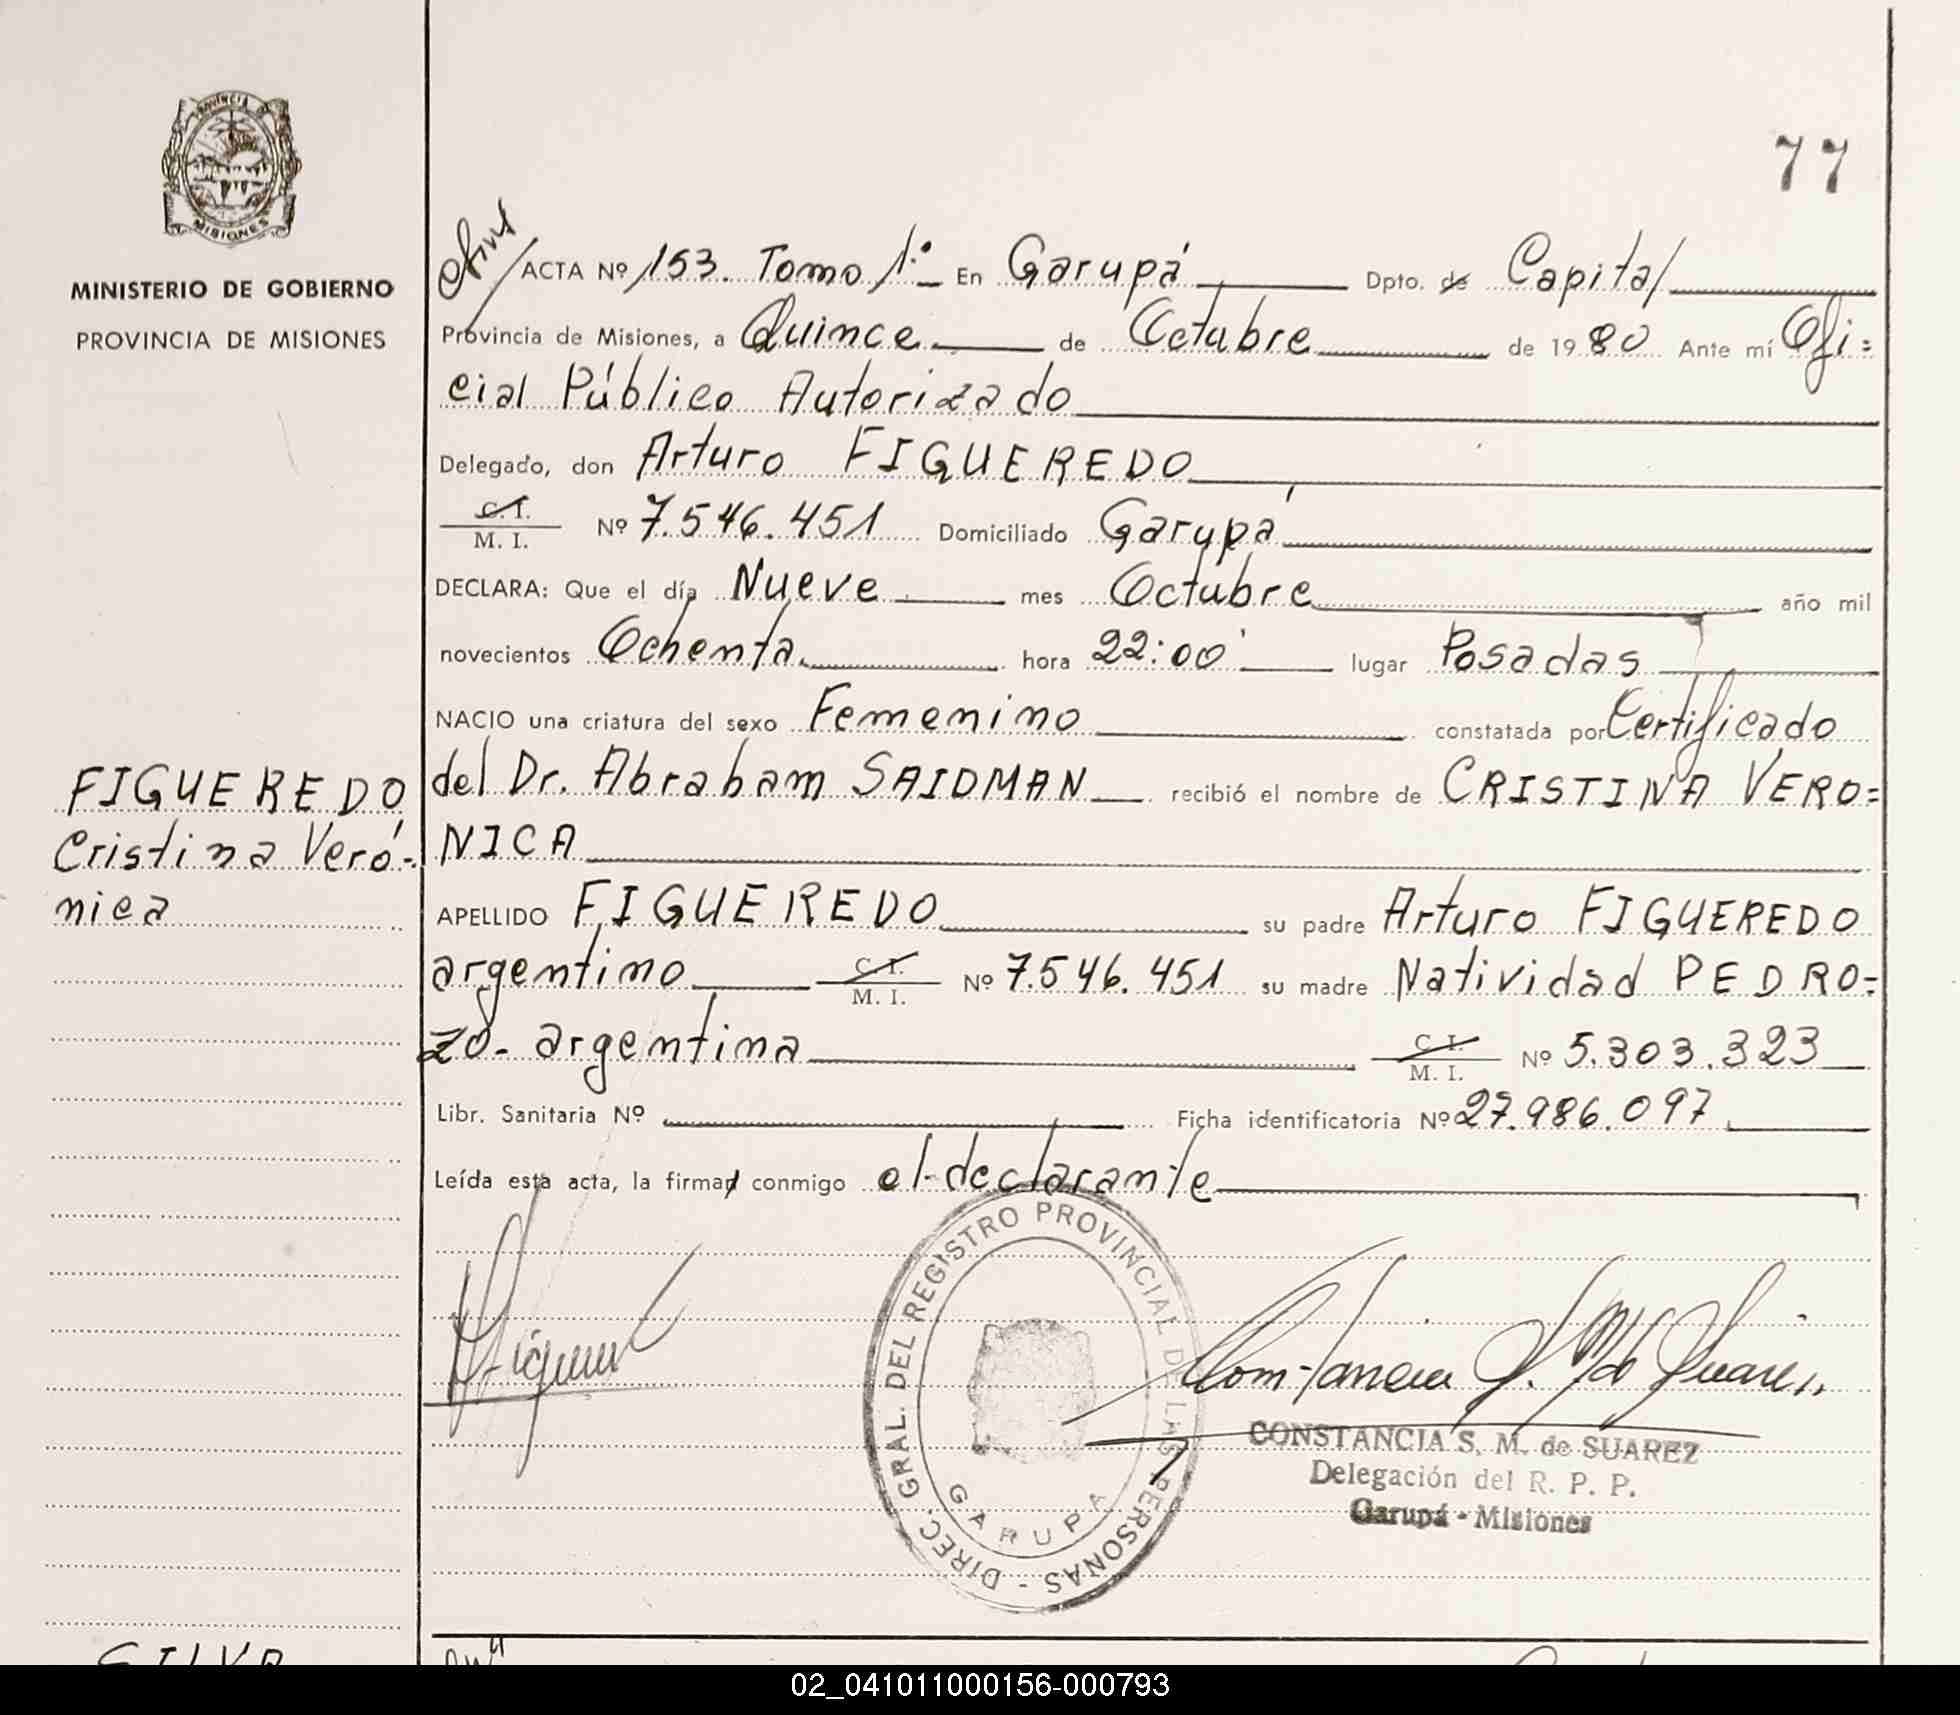 PROVINCIA DE
MISIONES
MINISTERIO DE GOBIERNO
PROVINCIA DE MISIONES
77
ACTA Nº 153. Tomo 1º En Garupá Dpto. de Capital
Provincia de Misiones, a Quince de Octubre de 1980 Ante mí Ofi=
cial Público Autorizado
Delegado, don Arturo FIGUEREDO
C. I.
M. I. Nº 7.546.451 Domiciliado Garupá
DECLARA: Que el día Nueve mes Octubre año mil
novecientos Ochenta hora 22:00 lugar Posadas
NACIO una criatura del sexo Femenino constatada por Certificado
del Dr. Abraham SAIDMAN recibió el nombre de CRISTINA VERO=
NICA
FIGUEREDO
Cristina Veró-
nica
APELLIDO FIGUEREDO su padre Arturo FIGUEREDO
argentino C. I. M. I. Nº 7.546.451 su madre Natividad PEDRO=
zo- argentina C. I. M. I. Nº 5.303.323
Libr. Sanitaria Nº Ficha identificatoria Nº 27.986.097
Leída esta acta, la firman conmigo el declarante
DIREC. GRAL. DEL REGISTRO PROVINCIAL DE LAS PERSONAS -
GARUPA
Constancia S. M. de Suárez
CONSTANCIA S. M. de SUAREZ
Delegación del R. P. P.
Garupá - Misiones
SILVA
02_041011000156-000793